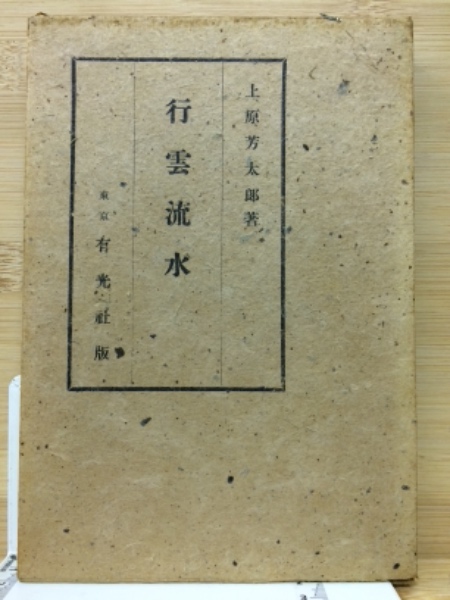 上原芳太郎著
行雲流水
東京 有光社版